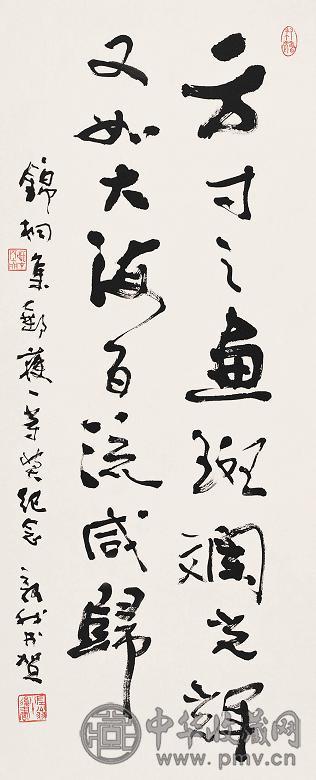 方寸之画斑斓光辉
又如大海百流咸归
锦桐集邮获一等奖纪念
书贺
中华收藏网
www.pmv.cn